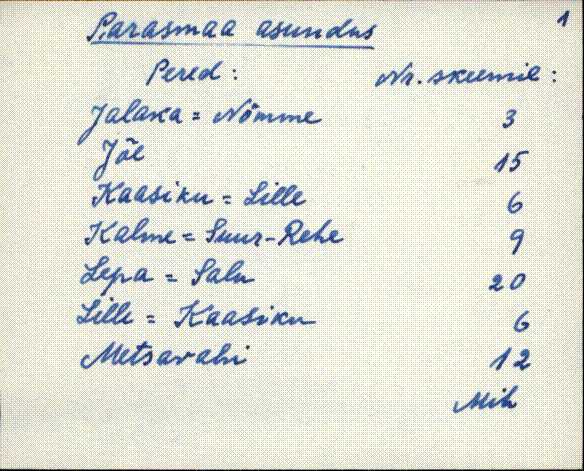 1
Parasmaa asundus
Pered: Nr. skeemil:
Jalaka = Nõmme 3
Jõe 15
Kaasiku = Lille 6
Kalme = Suur-Rehe 9
Lepa = Salu 20
Lille = Kaasiku 6
Metsavahi 12